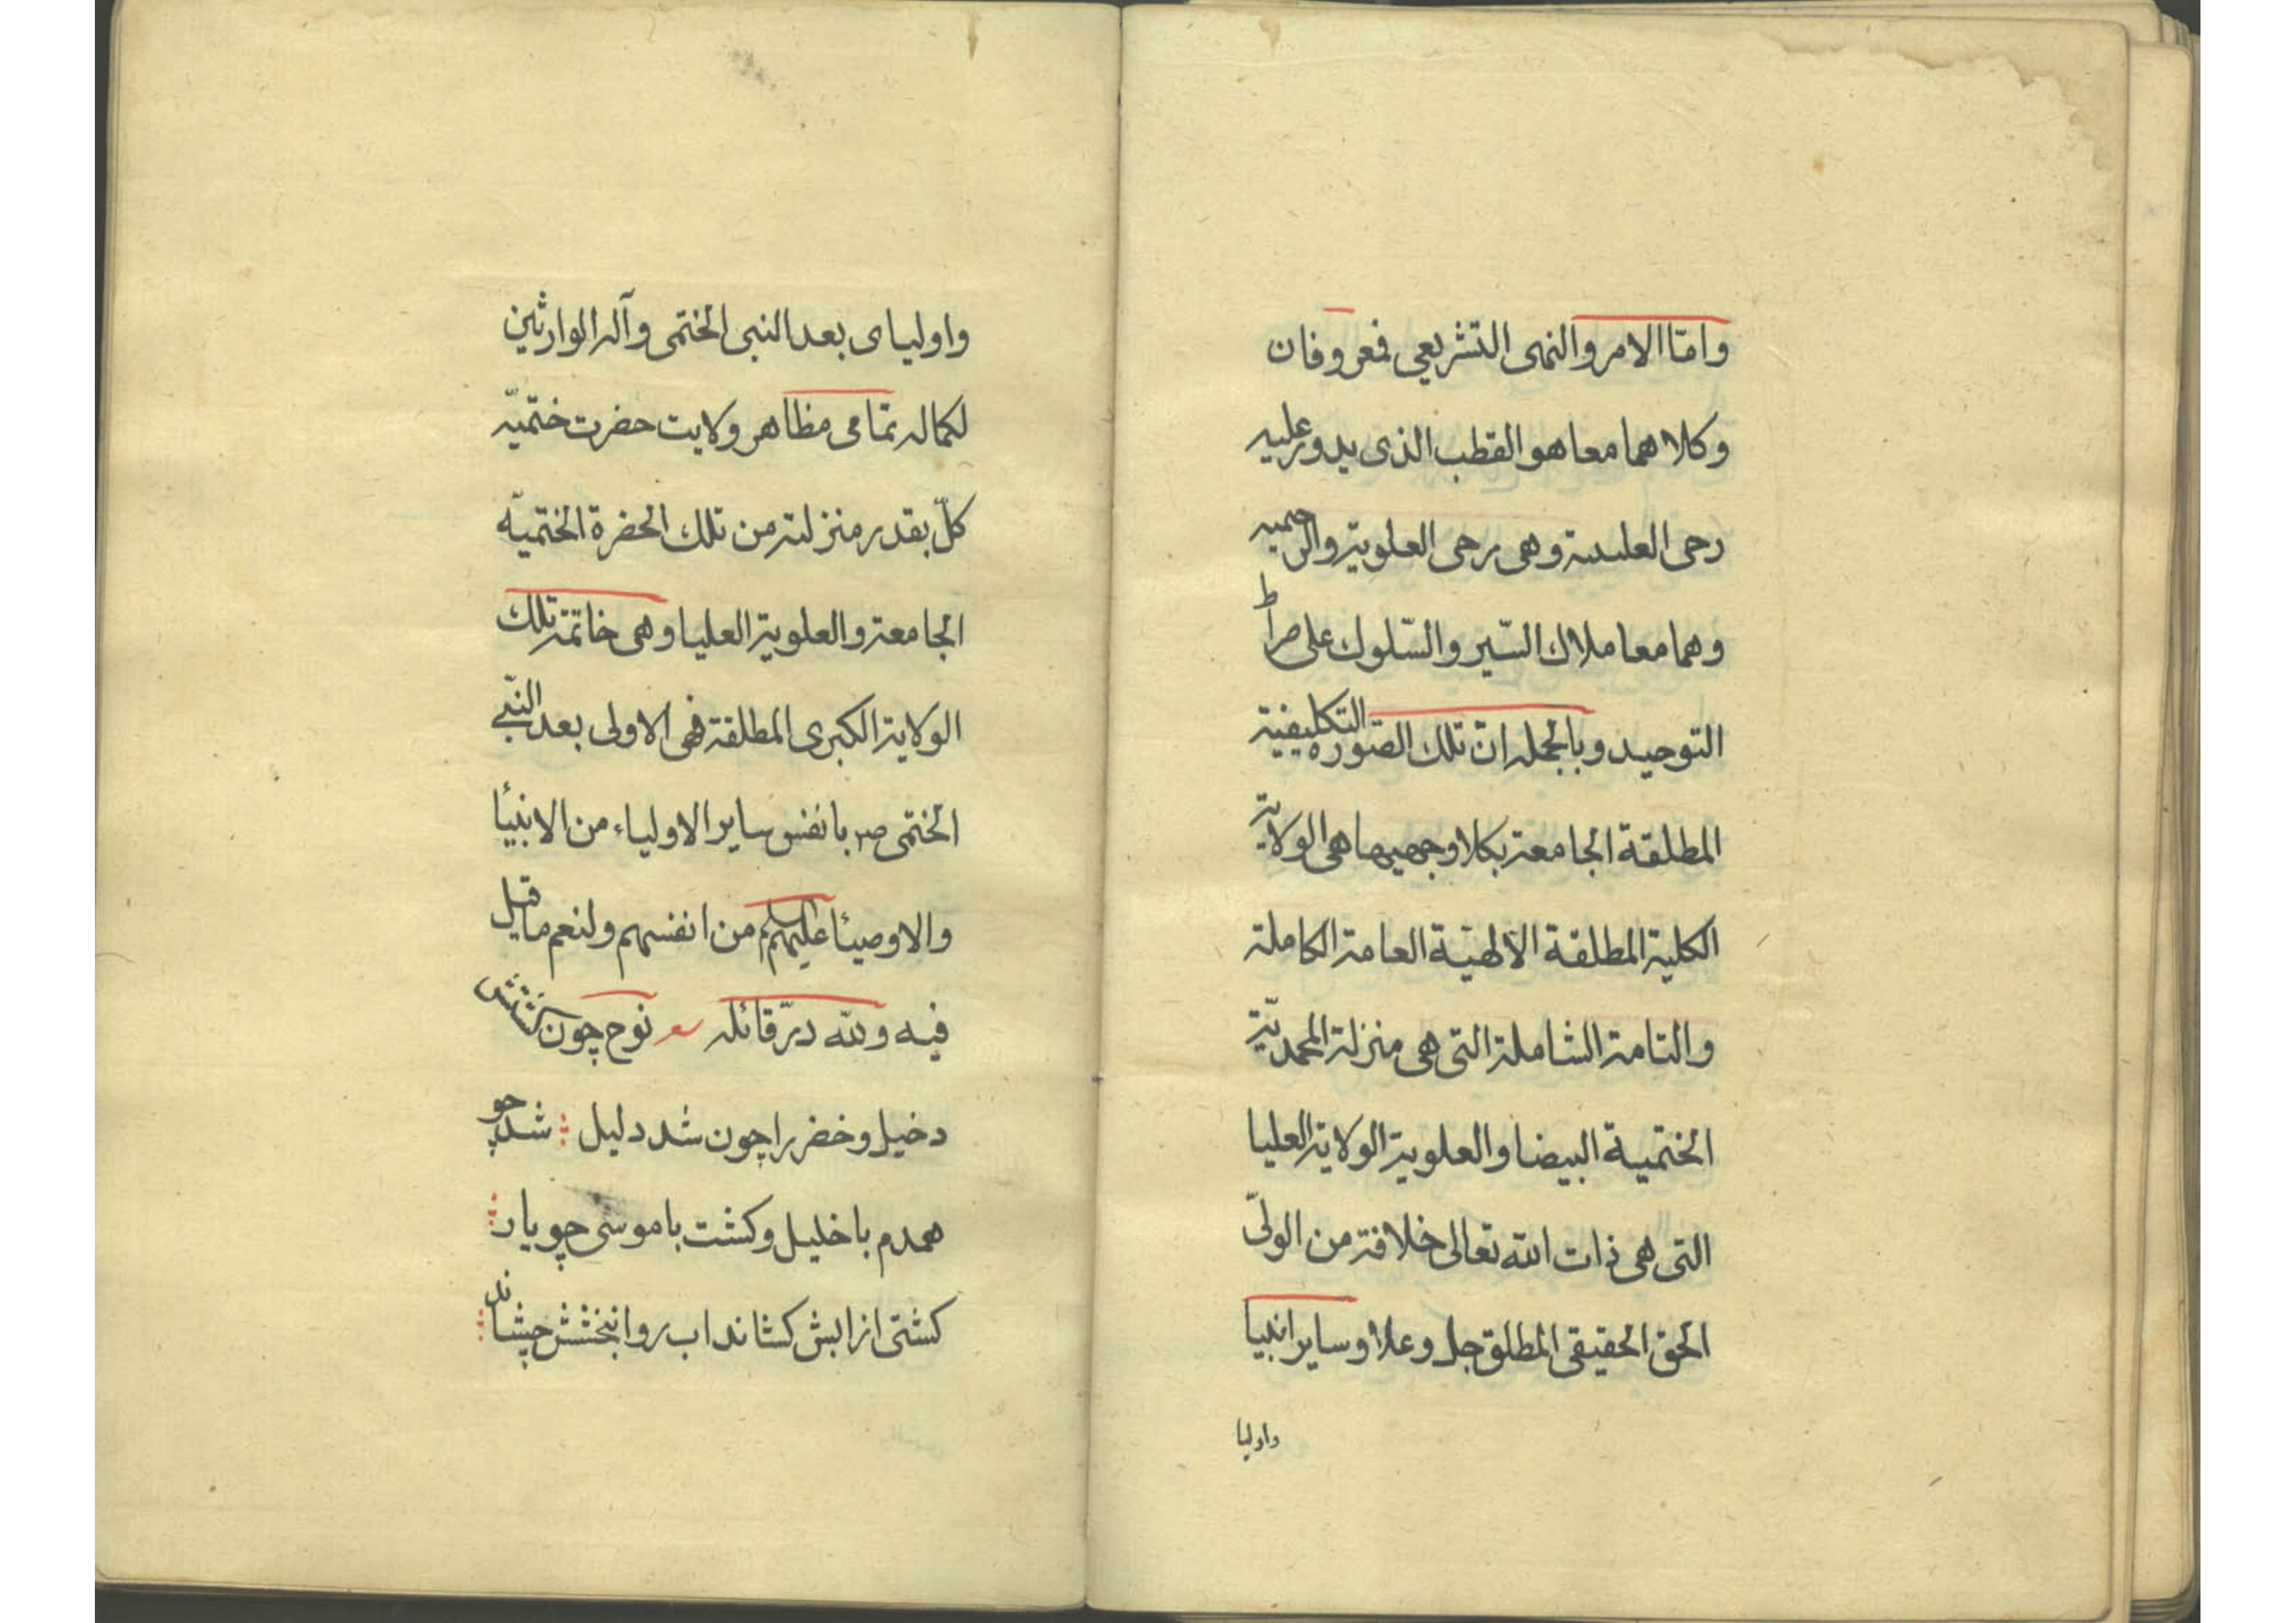 وامّا الامر والنهى التشريعي فمعروفان
وكلاهما معا هو القطب الذى يدور عليه
رحى العلىىىة وهى رحى العلوية والرحميه
وهما معا ملاك السّير والسّلوك على صراط
التوحيد وبالجمله انّ تلك الصّوره التكليفية
المطلقة الجامعة بكلا وجهيها هى الولاية
الكلية المطلقة الالهيّة العامة الكاملة
والتامة الشاملة التى هى منزلة المحمديّة
الختمية البيضا والعلوية الولاية العليا
التى هى ذات الله تعالى خلافة من الولىّ
الحق الحقيقى المطلق جل وعلا وساير انبيا
واوليا
واولياى بعد النبى الختمى وآله الوارثين
لكماله تمامى مظاهر ولايت حضرت ختميّه
كلّ بقدر منزلته من تلك الحضرة الختميّه
الجامعة والعلوية العليا وهى خاتمة تلك
الولاية الكبرى المطلقة فهى الاولى بعد النبّى
الختمى ص بانفس ساير الاولياء من الانبيٓا
والاوصيٓا عليهم السلم من انفسهم ولنعم ما قيل
فيه ولله درّ قائله نوح چون كشتش
دخيل و خضر را چون شد دليل شد چو
همدم با خليل و كشت با موسى چو يار
كشتى از ابش كشاند اب روا بخشش چشاند